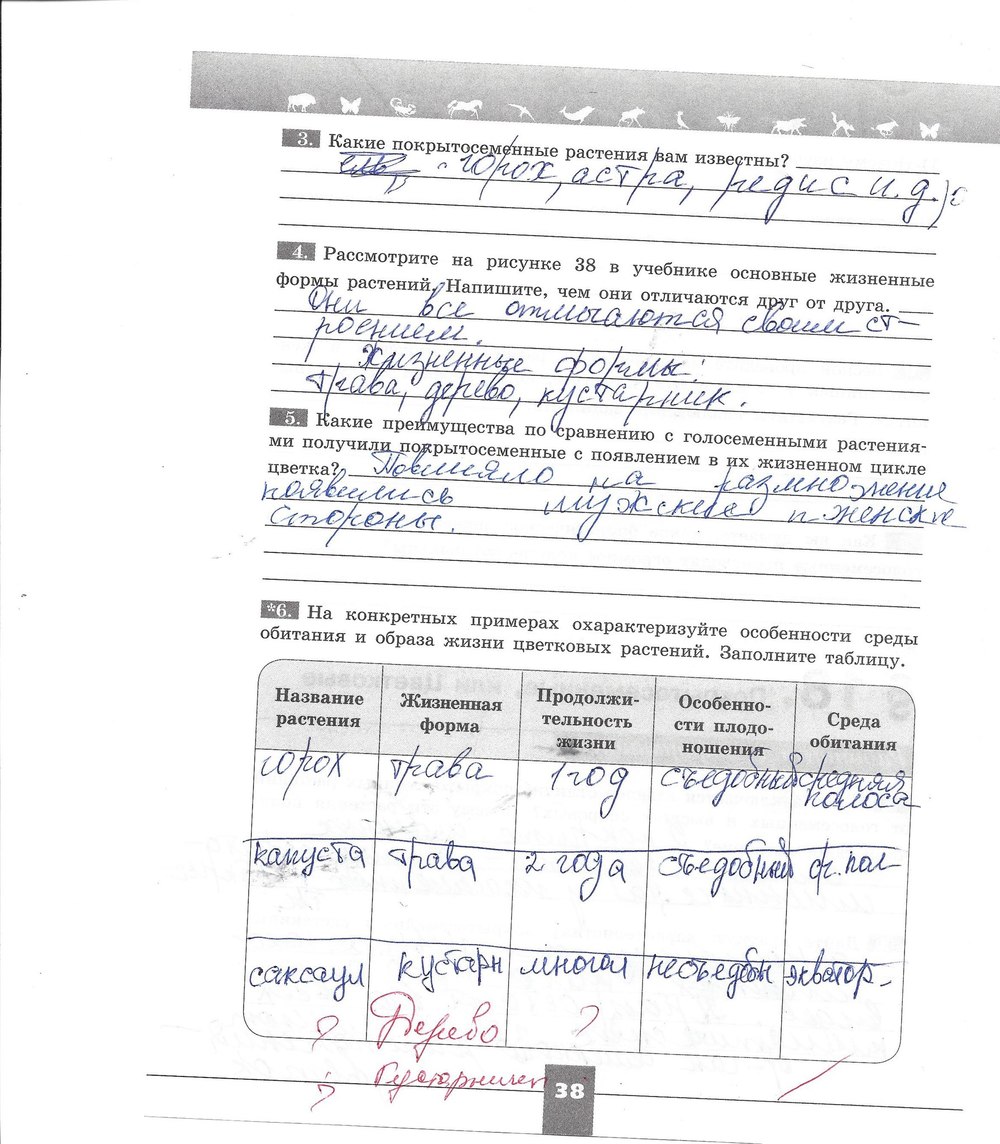 3. Какие покрытосеменные растения вам известны?
горох, астра, редис и.д.
4. Рассмотрите на рисунке 38 в учебнике основные жизненные
формы растений. Напишите, чем они отличаются друг от друга.
Они все отличаются своим ст-
роением.
Жизненные формы:
трава, дерево, кустарник.
5. Какие преимущества по сравнению с голосеменными растения-
ми получили покрытосеменные с появлением в их жизненном цикле
цветка? Повлияло на размножение
появились мужские и женские
стороны.
*6. На конкретных примерах охарактеризуйте особенности среды
обитания и образа жизни цветковых растений. Заполните таблицу.
Название растения
Жизненная форма
Продолжи-
тельность
жизни
Особенно-
сти плодо-
ношения
Среда
обитания
горох трава 1 год съедобный средняя
полоса
капуста трава 2 года съедобный ср. пол-
саксаул кустарн многол несъедобн экватор-
? Дерево ?
?
38